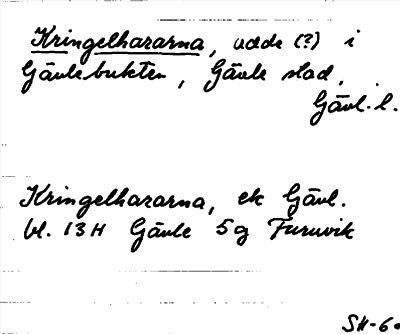 Kringelhararna, udde (?) i
Gävlebukten, Gävle stad,
Gävl. l.
Kringelhararna, ek Gävl.
bl. 13H Gävle 5g Furuvik